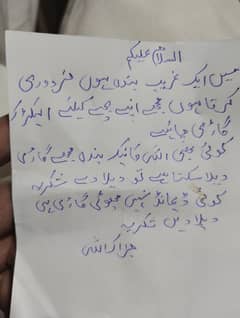 السلام علیکم
میں ایک غریب بندہ ہوں مزدوری
کرتا ہوں مجھے اپنے بچے کیلئے الیکٹرک
گاڑی چاہئے
کوئی بھی اللہ کا نیک بندہ مجھے گاڑی
دیلا سکتا ہے تو دیلا دے شکریہ
کوئی ڈیمانڈ نہیں چھوٹی گاڑی ہی
دیلا دیں شکریہ
جزاک اللہ